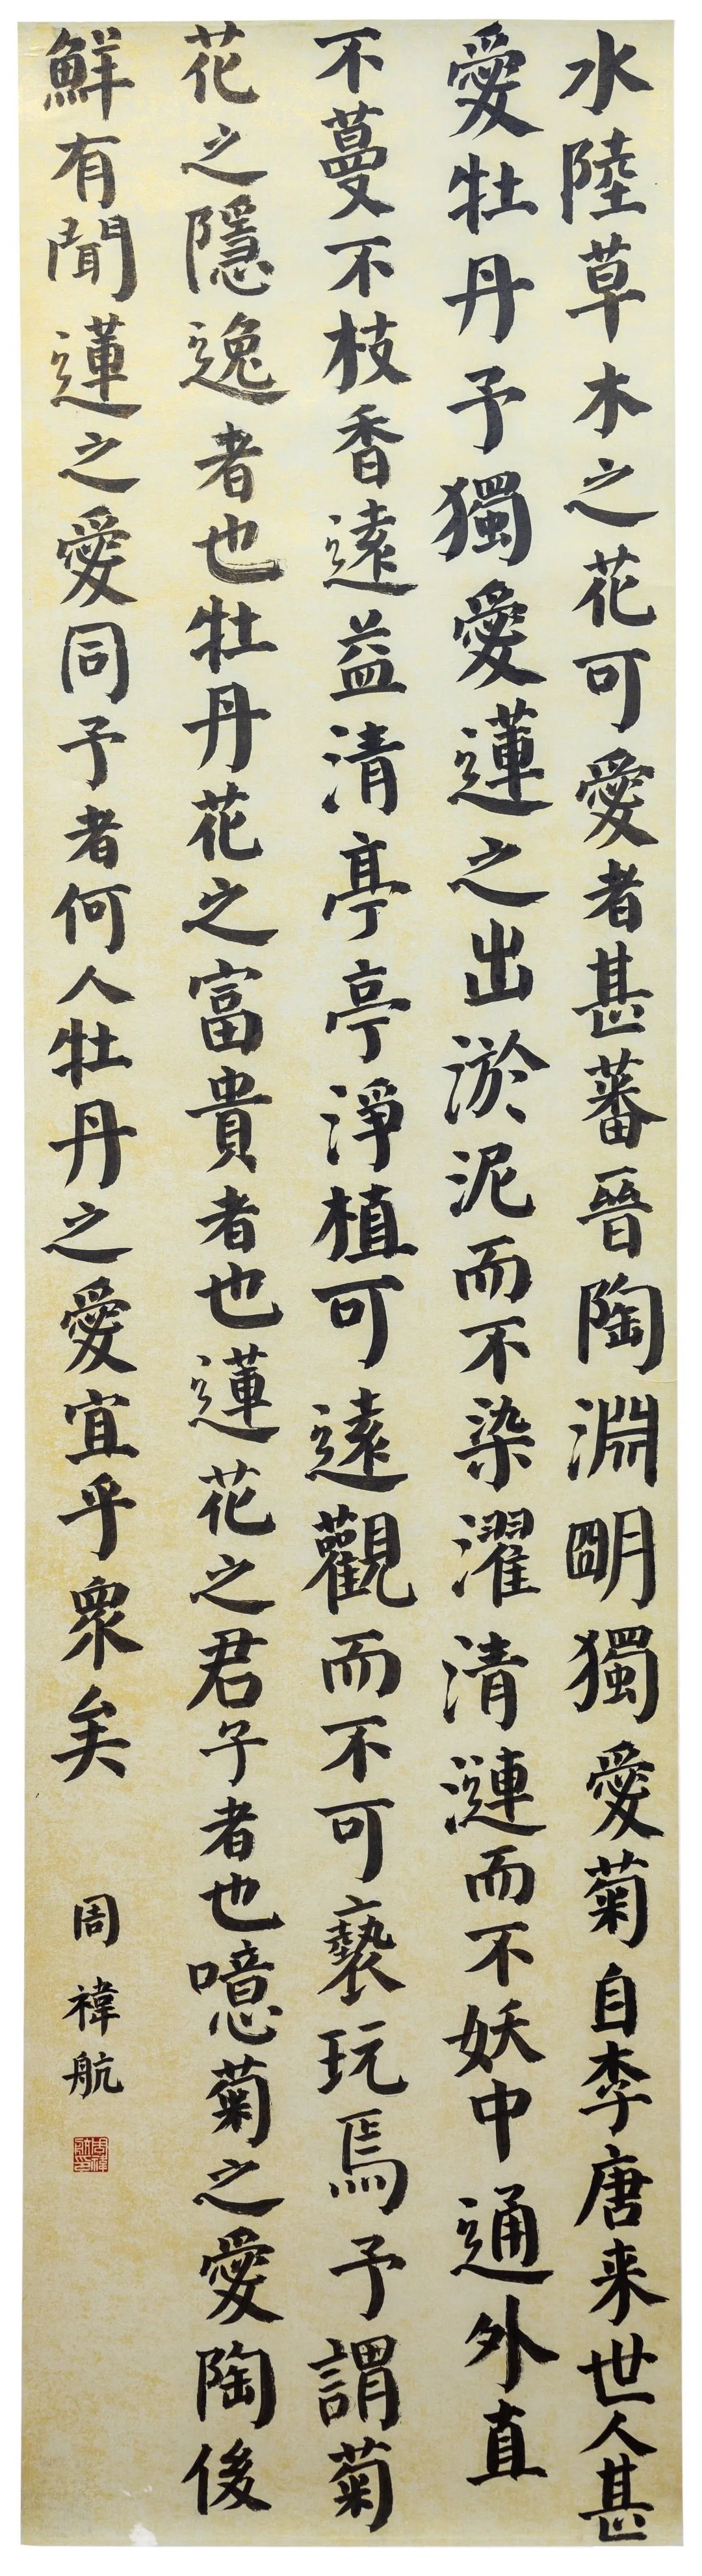 水陸草木之花可愛者甚蕃晉陶淵明獨愛菊自李唐来世人甚
愛牡丹予獨愛蓮之出淤泥而不染濯清漣而不妖中通外直
不蔓不枝香遠益清亭亭淨植可遠觀而不可褻玩焉予謂菊
花之隱逸者也牡丹花之富貴者也蓮花之君子者也噫菊之愛陶後
鮮有聞蓮之愛同予者何人牡丹之愛宜乎衆矣
周禕航